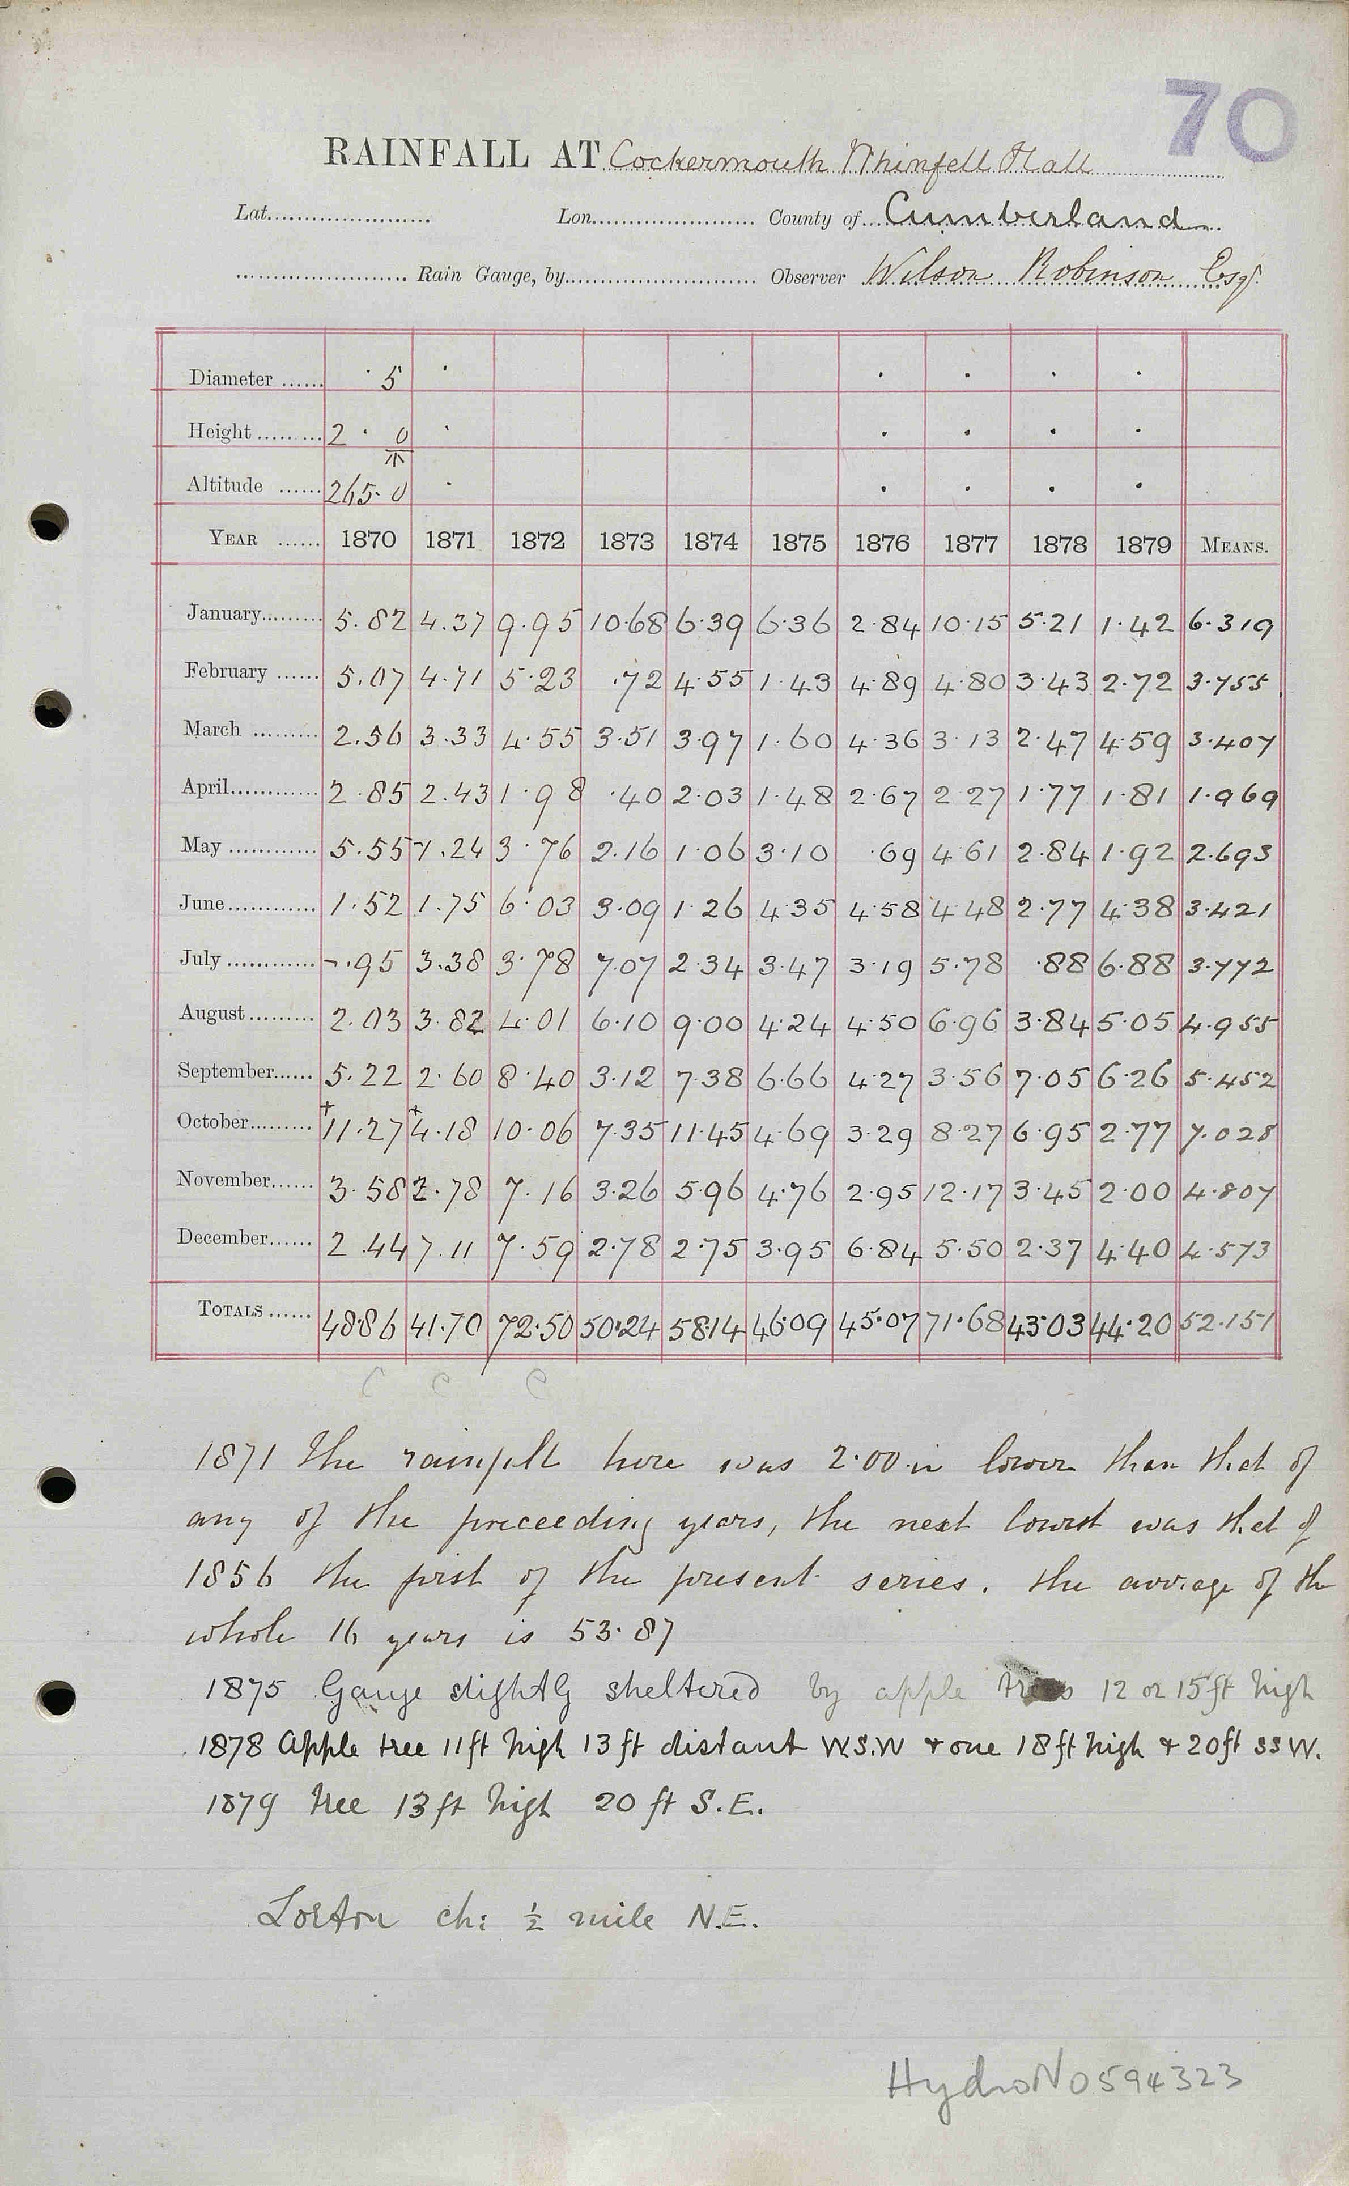 70
RAINFALL AT Cockermouth Whinfell Hall
Lat. Lon. County of Cumberland
Rain Gauge, by Observer Wilson Robinson Esqr.
Diameter 5
Height 2 . 0
Altitude 265.0
YEAR 1870 1871 1872 1873 1874 1875 1876 1877 1878 1879 MEANS.
January 5.82 4.37 9.95 10.68 6.39 6.36 2.84 10.15 5.21 1.42 6.319
February 5.07 4.71 5.23 .72 4.55 1.43 4.89 4.80 3.43 2.72 3.755
March 2.56 3.33 4.55 3.51 3.97 1.60 4.36 3.13 2.47 4.59 3.407
April 2.85 2.43 1.98 .40 2.03 1.48 2.67 2.27 1.77 1.81 1.969
May 5.55 1.24 3.76 2.16 1.06 3.10 .69 4.61 2.84 1.92 2.693
June 1.52 1.75 6.03 3.09 1.26 4.35 4.58 4.48 2.77 4.38 3.421
July .95 3.38 3.78 7.07 2.34 3.47 3.19 5.78 .88 6.88 3.772
August 2.03 3.82 4.01 6.10 9.00 4.24 4.50 6.96 3.84 5.05 4.955
September 5.22 2.60 8.40 3.12 7.38 6.66 4.27 3.56 7.05 6.26 5.452
October +11.27 +4.18 10.06 7.35 11.45 4.69 3.29 8.27 6.95 2.77 7.028
November 3.58 2.78 7.16 3.26 5.96 4.76 2.95 12.17 3.45 2.00 4.807
December 2.44 7.11 7.59 2.78 2.75 3.95 6.84 5.50 2.37 4.40 4.573
TOTALS 48.86 41.70 72.50 50.24 58.14 46.09 45.07 71.68 43.03 44.20 52.151
C C C
1871 The rainfall here was 2.00 in lower than that of
any of the preceeding years, the next lowest was that of
1856 the first of the present series. the average of the
whole 16 years is 53.87
1875 Gauge slightly sheltered by apple trees 12 or 15 ft high
1878 Apple tree 11 ft high 13 ft distant W.S.W + one 18 ft high + 20 ft SSW.
1879 tree 13 ft high 20 ft S.E.
Lorton ch: ½ mile N.E.
HydroNo594323